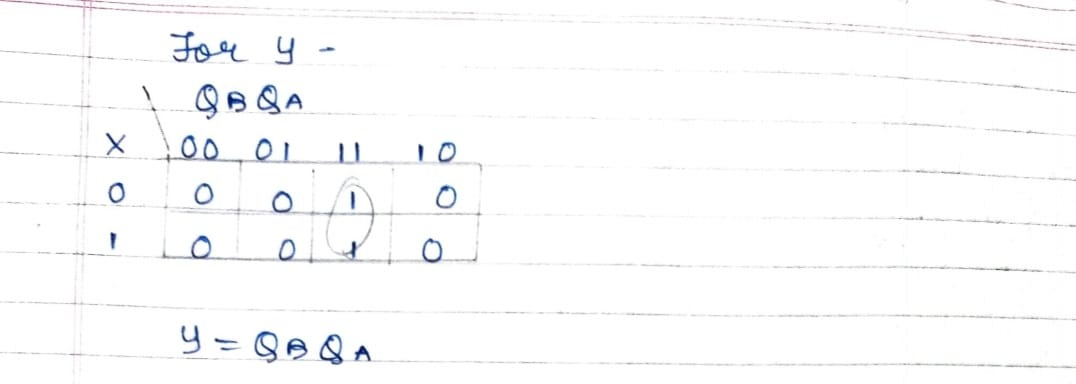 For y -
QB QA
X 00 01 11 10
0 0 0 1 0
1 0 0 1 0
y = QB QA